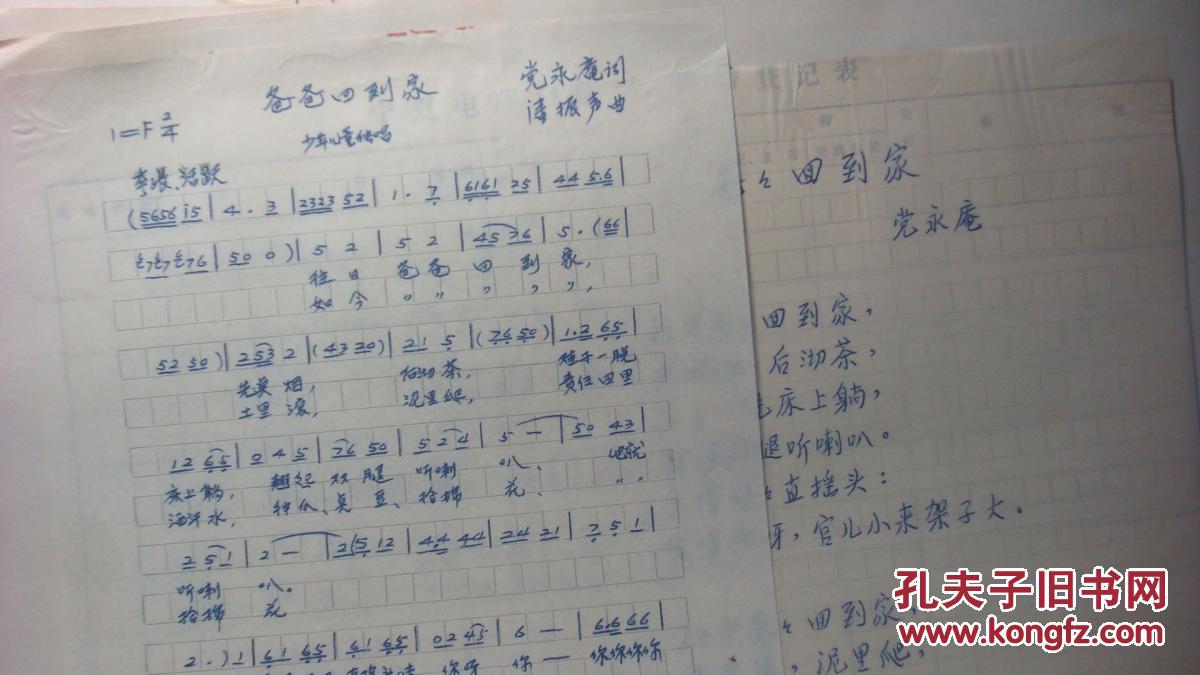 爸爸回到家
党永庵词
1=F 2/4
振声曲
少年儿童
活跃
(5656 i5 | 4 . 3 | 2323 52 | 1 . 7 | 6161 25 | 44 5.6 |
50 0 ) | 5 2 | 5 2 | 45 76 | 5 . (66 |
往日 爸爸 回 到 家,
如今 〃 〃 〃 〃 〃,
52 50 ) | 253 2 | (43 20) | 21 5 | (76 50) | 1.2 65 |
先 烟, 后沏茶, 鞋子一脱
土里滚, 泥里爬, 责任田里
12 65 | 0 4 5 | 76 50 | 5 2 4 | 5 — | 50 43 |
床上躺, 翘起 双 腿 听喇 叭、 他就
洒汗水, 种瓜、 豆、 拾棉 花、 〃 〃
2 5 1 | 2 — | 2(5 12 | 4.4 44 | 24 21 | 7 5 1 |
听喇 叭。
拾棉 花
2 . ) 1 | 61 65 | 61 65 | 02 45 | 6 — | 6.6 66 |
你呀 你 — 你你你你
记表
回到家
党永庵
回到家,
后沏茶,
床上躺,
腿听喇叭。
直摇头:
呀, 官儿小来架子大。
回到家,
, 泥里爬,
孔夫子旧书网
www.kongfz.com